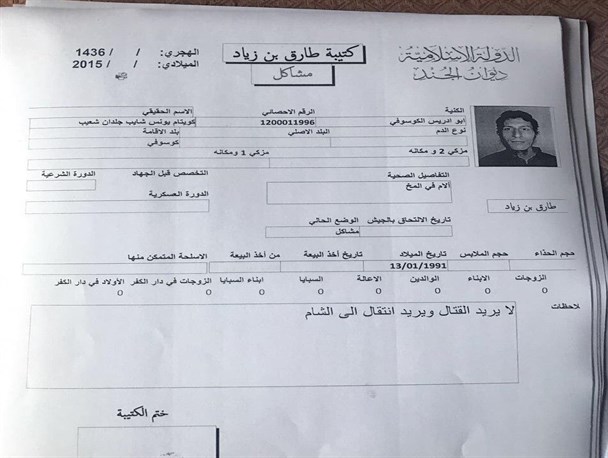 الدولة الإسلامية
ديوان الجند
كتيبة طارق بن زياد
مشاكل
الهجري: / / 1436
الميلادي: / / 2015
الكنية
الرقم الاحصائي
الاسم الحقيقي
ابو ادريس الكوسوفي
1200011996
يونس شايب
نوع الدم
البلد الاصلي
بلد الاقامة
كوسوفي
مزكي 2 و مكانه
مزكي 1 ومكانه
التفاصيل الصحية
التخصص قبل الجهاد
الدورة الشرعية
آلام في المخ
طارق بن زياد
الدورة العسكرية
تاريخ الالتحاق بالجيش
الوضع الحالي
مشاكل
حجم الحذاء
حجم الملابس
تاريخ الميلاد
تاريخ أخذ البيعة
من أخذ البيعة
الاسلحة المتمكن منها
13/01/1991
الزوجات
الابناء
الوالدين
الاعالة
السبايا
ابناء السبايا
الزوجات في دار الكفر
الأولاد في دار الكفر
0 0 0 0 0 0 0 0
لاحظات
لا يريد القتال ويريد انتقال الى الشام
ختم الكتيبة